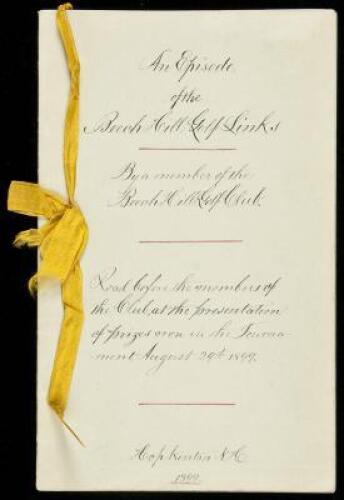 An Episode
of the
Beech Hill Golf Links
By a member of the
Beech Hill Golf Club.
Read before the members of
the Club, at the presentation
of prizes won in the Tourna-
ment August 29th 1899.
Hopkinton N H
1899